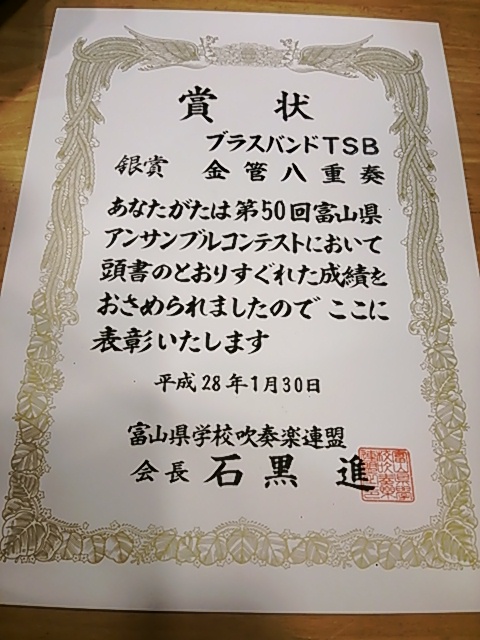 賞状
ブラスバンドTSB
銀賞 金管八重奏
あなたがたは第50回富山県
アンサンブルコンテストにおいて
頭書のとおりすぐれた成績を
おさめられましたので ここに
表彰いたします
平成28年1月30日
富山県学校吹奏楽連盟
会長 石黒 進